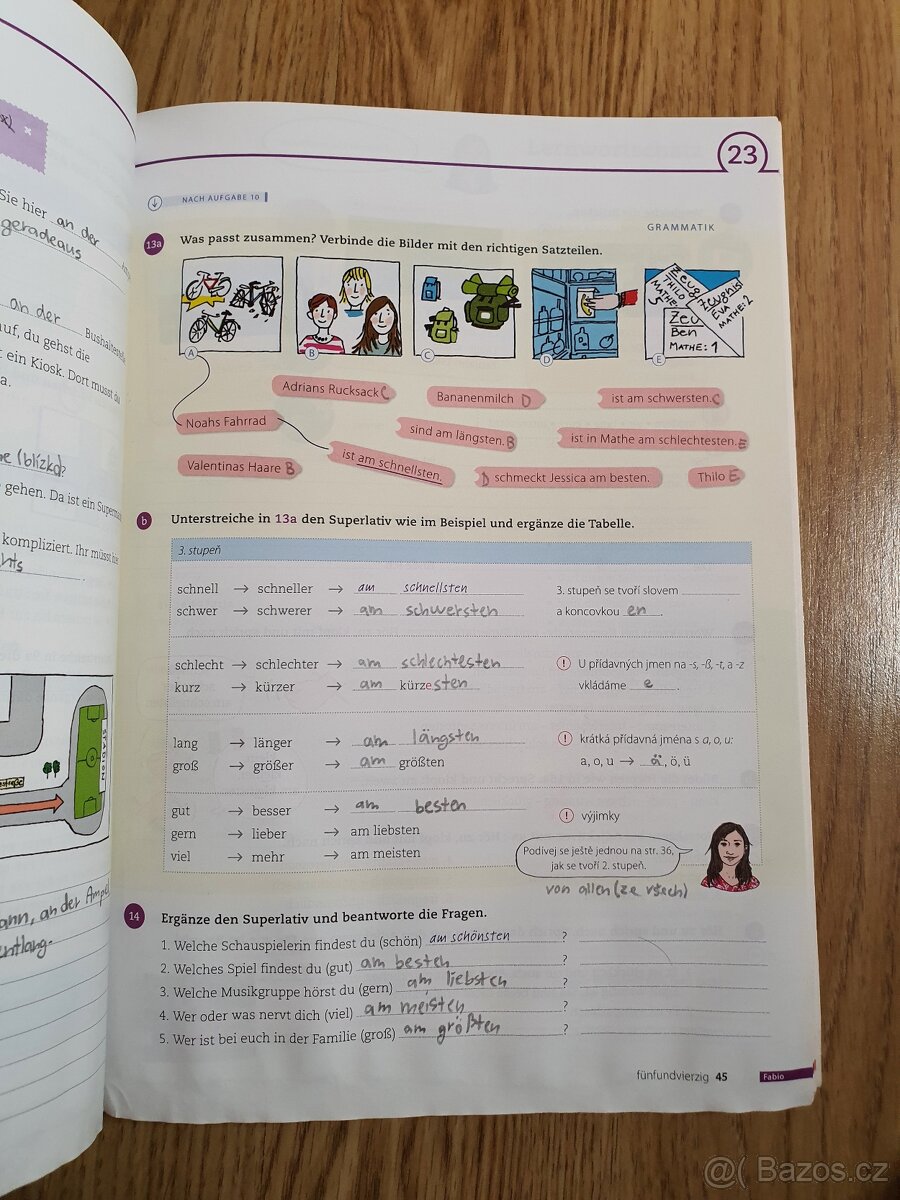 Sie hier an der
geradeaus
an der Bushaltestelle
auf, du gehst die
t ein Kiosk. Dort musst du
a.
he (blízko)?
gehen. Da ist ein Supermarkt
kompliziert. Ihr müsst hier
chts
STADION
ann, an der Ampel
entlang.
23
NACH AUFGABE 10
GRAMMATIK
13a Was passt zusammen? Verbinde die Bilder mit den richtigen Satzteilen.
A
B
C
D
E
Zeug
THILO
MATHE: 5
Zeugnis
EVA
MATHE: 2
Zeu
Ben
MATHE: 1
Adrians Rucksack C
Bananenmilch D
ist am schwersten. C
Noahs Fahrrad
sind am längsten. B
ist in Mathe am schlechtesten. E
Valentinas Haare B
ist am schnellsten.
D schmeckt Jessica am besten.
Thilo E
b Unterstreiche in 13a den Superlativ wie im Beispiel und ergänze die Tabelle.
3. stupeň
schnell → schneller → am schnellsten 3. stupeň se tvoří slovem
schwer → schwerer → am schwersten a koncovkou en.
schlecht → schlechter → am schlechtesten ! U přídavných jmen na -s, -ß, -t, a -z
kurz → kürzer → am kürzesten vkládáme e.
lang → länger → am längsten ! krátká přídavná jména s a, o, u:
groß → größer → am größten a, o, u → ä, ö, ü
gut → besser → am besten ! výjimky
gern → lieber → am liebsten
viel → mehr → am meisten
Podívej se ještě jednou na str. 36,
jak se tvoří 2. stupeň.
von allen (ze všech)
14 Ergänze den Superlativ und beantworte die Fragen.
1. Welche Schauspielerin findest du (schön) am schönsten ?
2. Welches Spiel findest du (gut) am besten ?
3. Welche Musikgruppe hörst du (gern) am liebsten ?
4. Wer oder was nervt dich (viel) am meisten ?
5. Wer ist bei euch in der Familie (groß) am größten ?
fünfundvierzig 45 Fabio
@( Bazos.cz